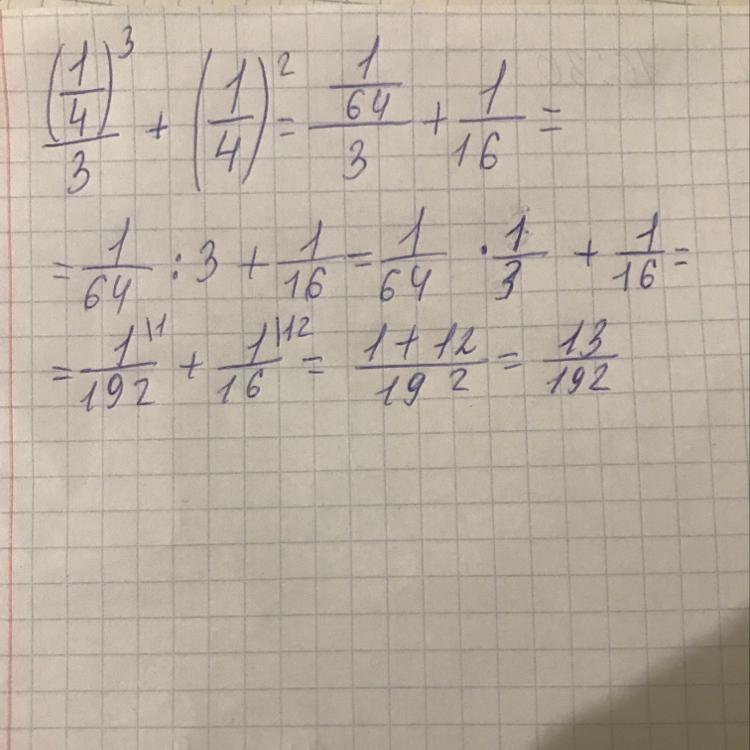 (1/4)³/3 + (1/4)² = (1/64)/3 + 1/16 =
= 1/64 : 3 + 1/16 = 1/64 · 1/3 + 1/16 =
= 1\1/192 + 1\12/16 = (1+12)/192 = 13/192